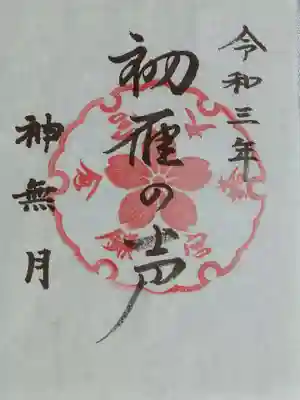 令和三年
初雁の声
神無月